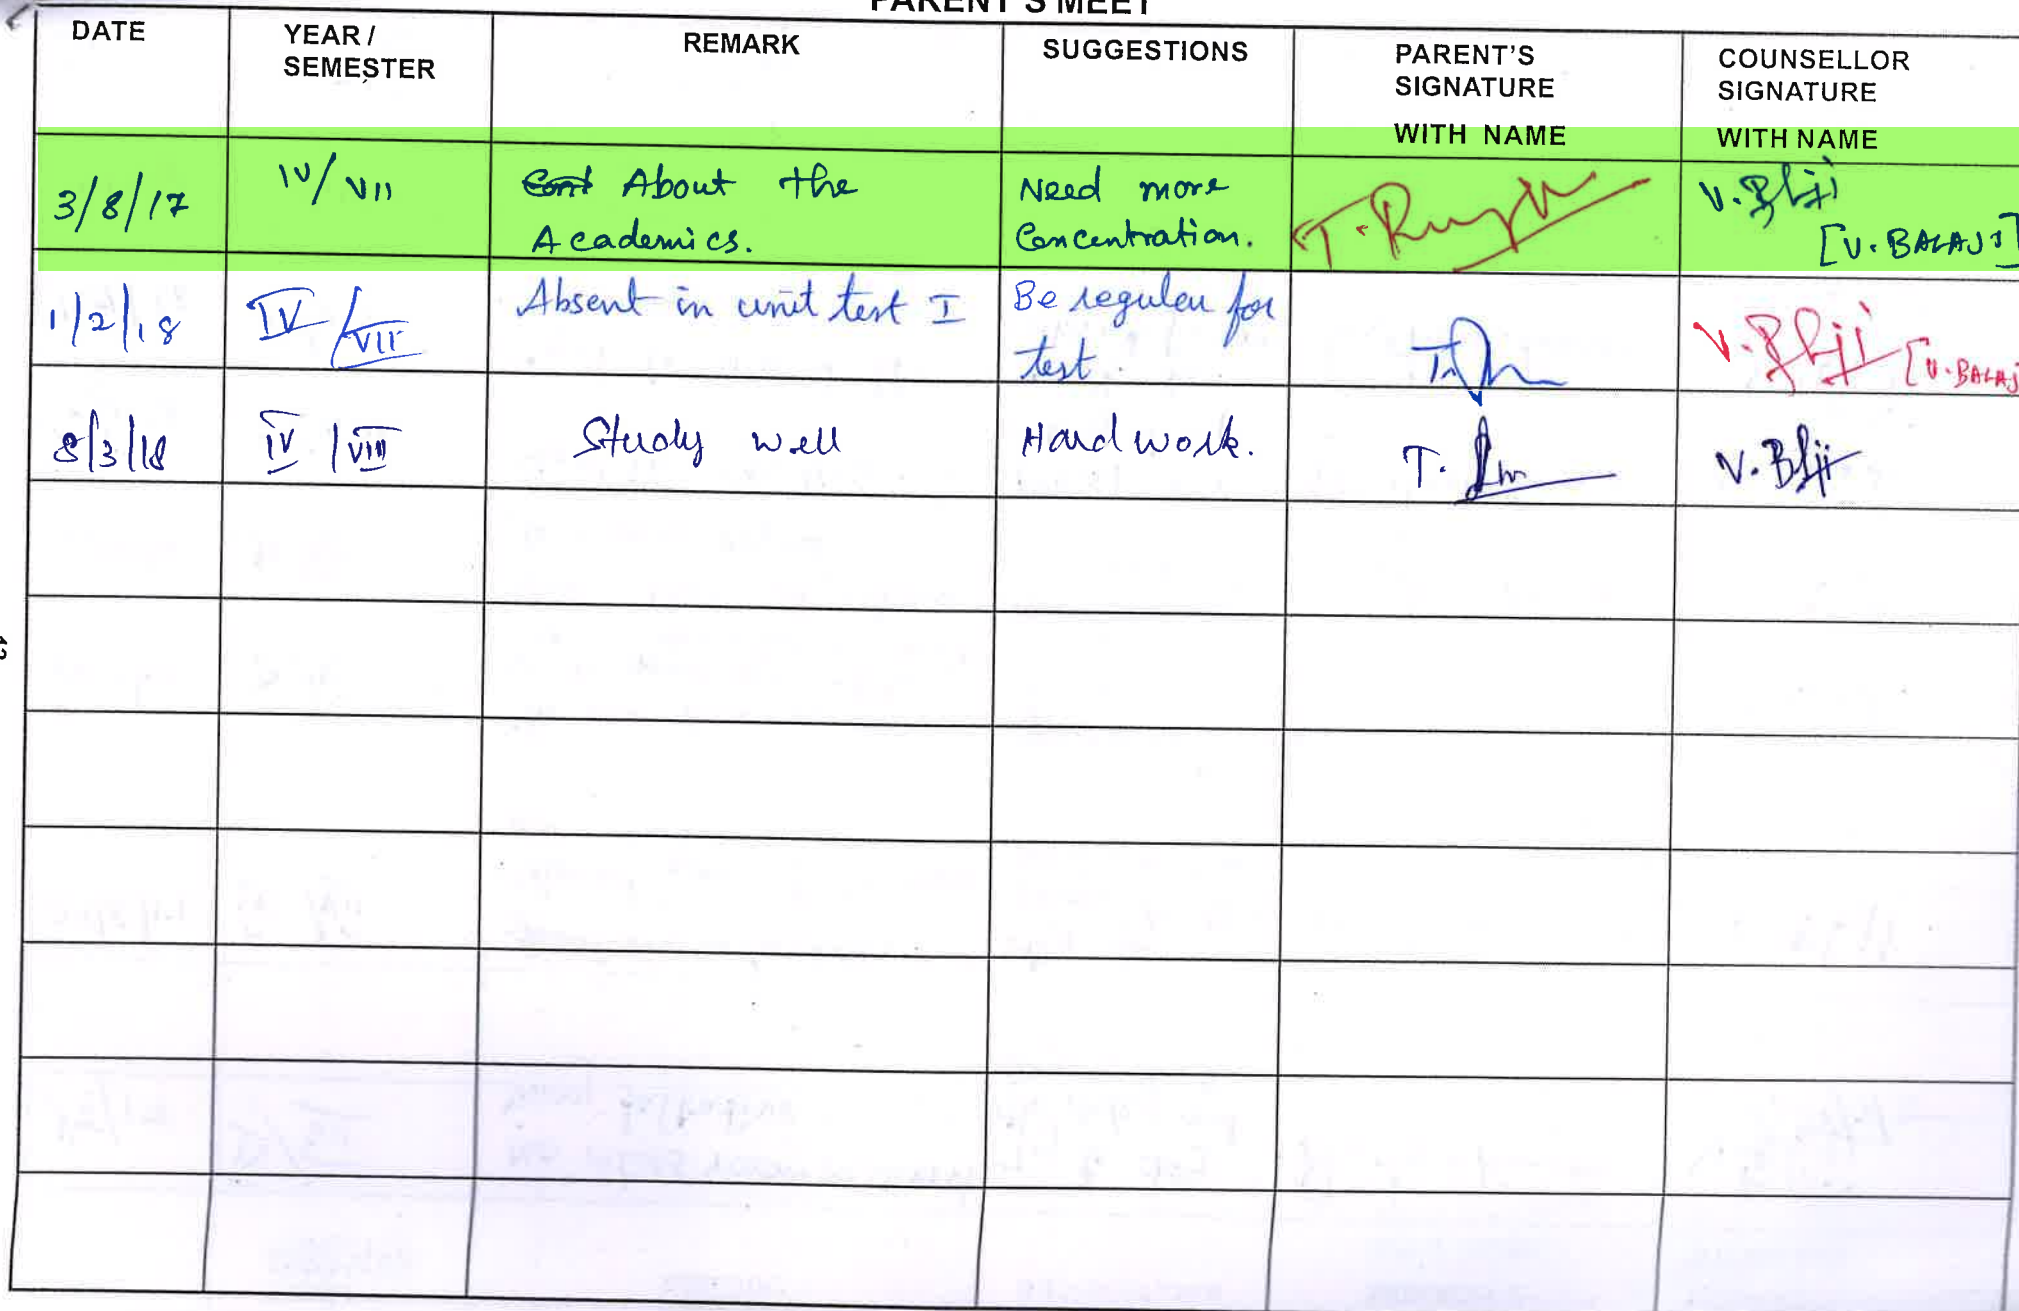 PARENT'S MEET
DATE YEAR / SEMESTER REMARK SUGGESTIONS PARENT'S SIGNATURE WITH NAME COUNSELLOR SIGNATURE WITH NAME
3/8/17 IV/VII About the Need more
Academics. Concentration. [V. BALAJI]
1/2/18 IV/VII Absent in unit test I Be regular for
test. [V. BALAJ
8/3/18 IV/VIII Study well Hard work.